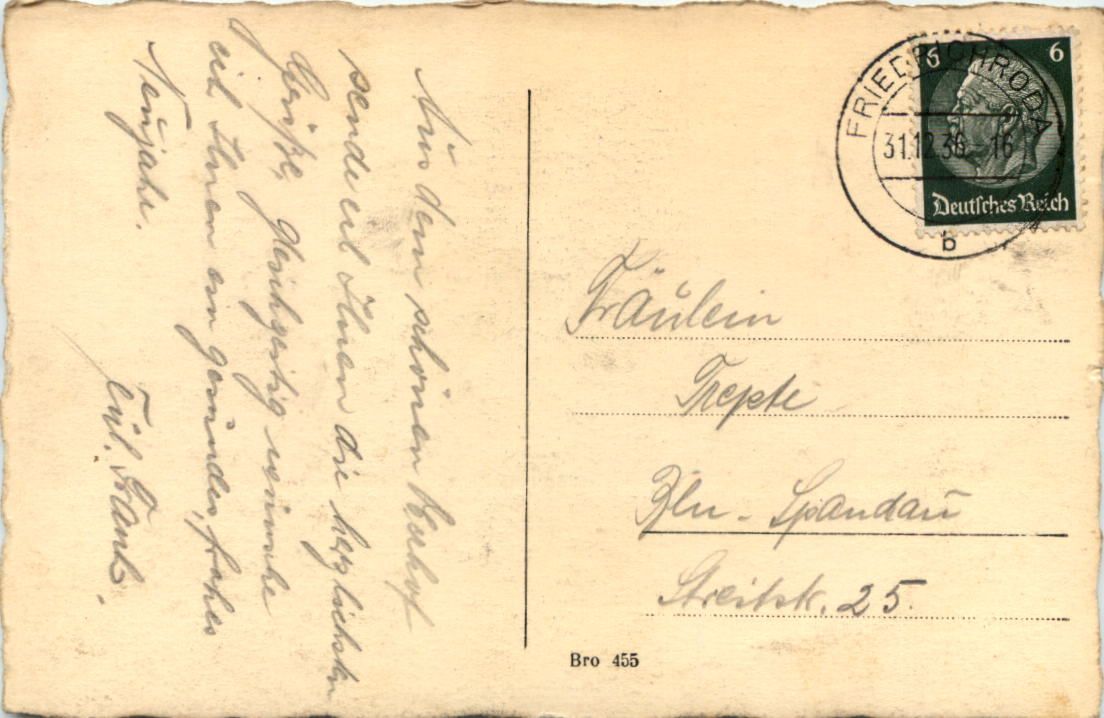 Aus dem schönen
sende ich Ihnen die herzlichsten
Grüße, gleichzeitig wünsche
ich Ihnen ein gesundes, frohes
Neujahr.
Frank.
6 6
Deutsches Reich
FRIEDRICHRODA
31.12.36-16
b
Fräulein
Trepte
Bln - Spandau
Streitstr. 25.
Bro 455